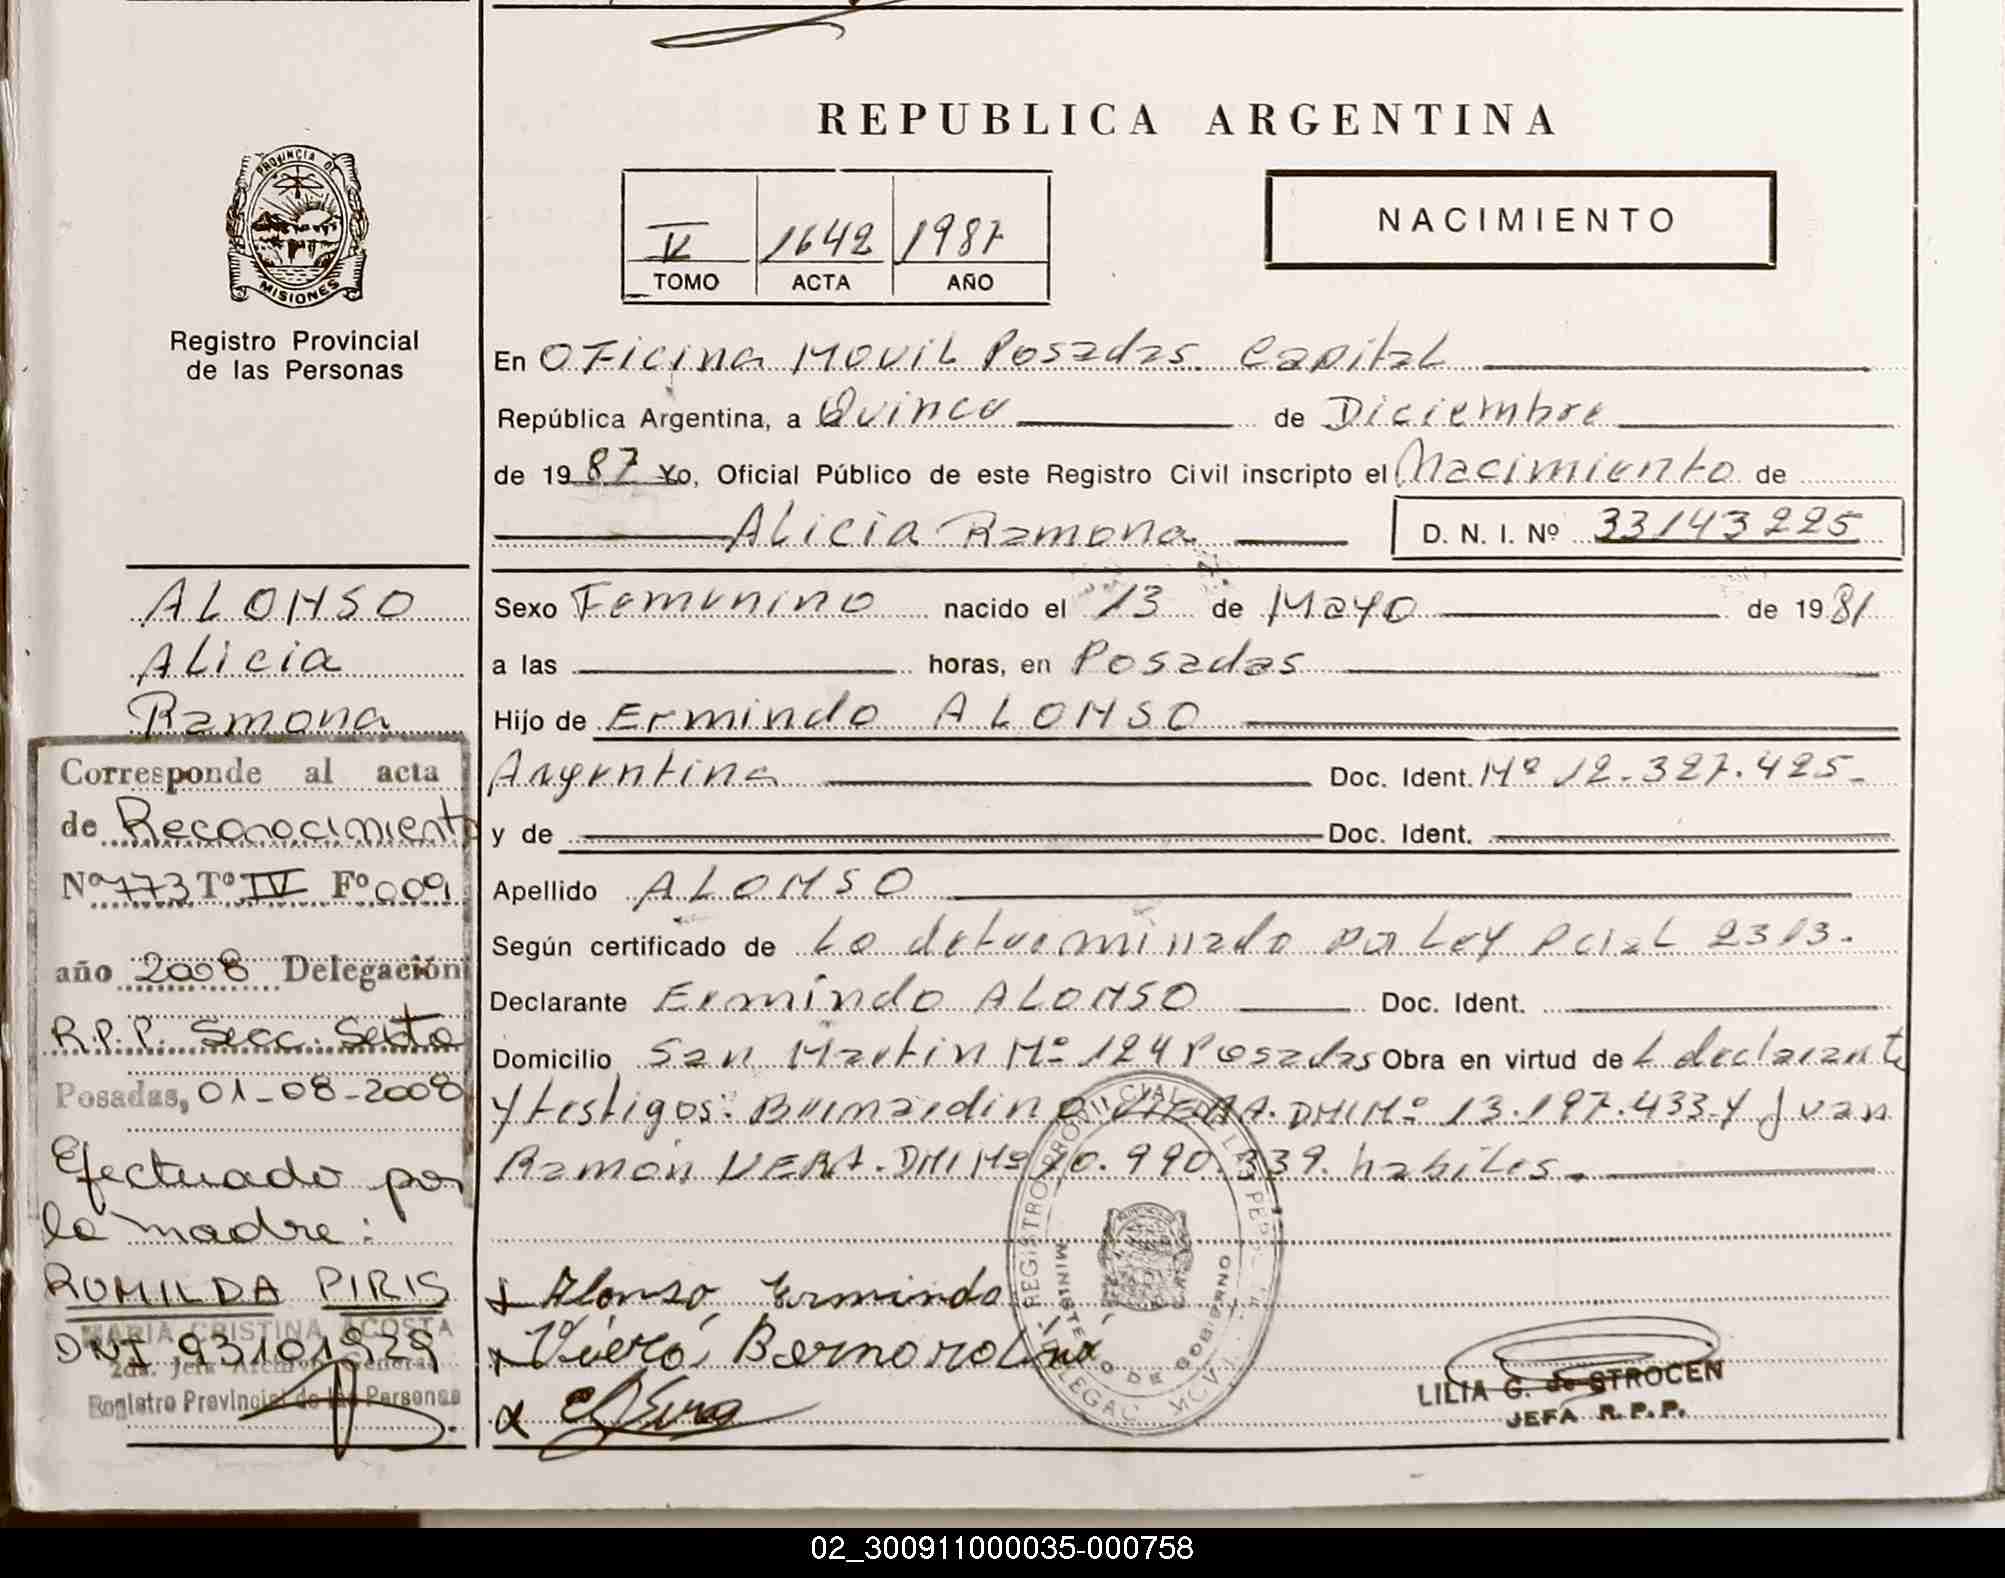 REPUBLICA ARGENTINA
PROVINCIA DE
MISIONES
Registro Provincial
de las Personas
V 1642 1987
TOMO ACTA AÑO
NACIMIENTO
En Oficina Movil Posadas Capital
República Argentina, a Quince de Diciembre
de 1987 Yo, Oficial Público de este Registro Civil inscripto el Nacimiento de
Alicia Ramona D. N. I. Nº 33143225
ALONSO
Alicia
Ramona
Sexo Femenino nacido el 13 de Mayo de 1981
a las horas, en Posadas
Hijo de Ermindo ALONSO
Argentina Doc. Ident. Nº 12.327.425-
y de Doc. Ident.
Apellido ALONSO
Según certificado de Lo determinado por Ley Pcial 2313.
Declarante Ermindo ALONSO Doc. Ident.
Domicilio San Martin Nº 124 Posadas Obra en virtud de L declarante
y testigos: Bernardino VIERA. DNI Nº 13.197.433 y Juan
Ramón VERA. DNI Nº 20.990.339. habiles.
Corresponde al acta
de Reconocimiento
Nº 773 Tº IV Fº 009
año 2008 Delegación
R.P.P. Secc. Sexta
Posadas, 01-08-2008
Efectuado por
la madre:
ROMILDA PIRIS
DNI 93101929
MARIA CRISTINA ACOSTA
2da. Jefa Archivo General
Registro Provincial de las Personas
Alonso Ermindo
Viera Bernardino
REGISTRO PROVINCIAL DE LAS PERS
MINISTERIO DE GOBIERNO
DELEGAC. MCVI
LILIA G. de STROCEN
JEFA R.P.P.
02_300911000035-000758